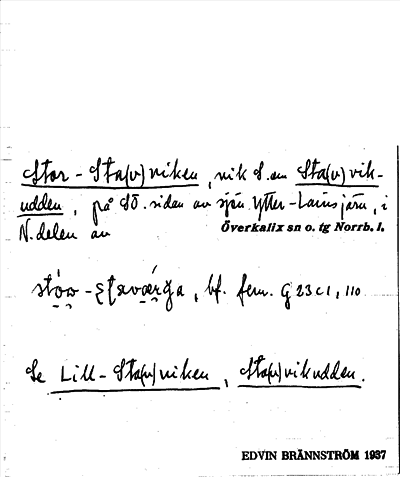 Stor-Sta(v)viken, vik S. om Sta(v)vik-
udden, på SÖ. sidan av sjön Ytter-Lainsjärv, i
N. delen av Överkalix sn o. tg Norrb. l.
bf. fem. G 23 c 1, 110.
Se Lill-Sta(v)viken, Sta(v)vikudden.
EDVIN BRÄNNSTRÖM 1937